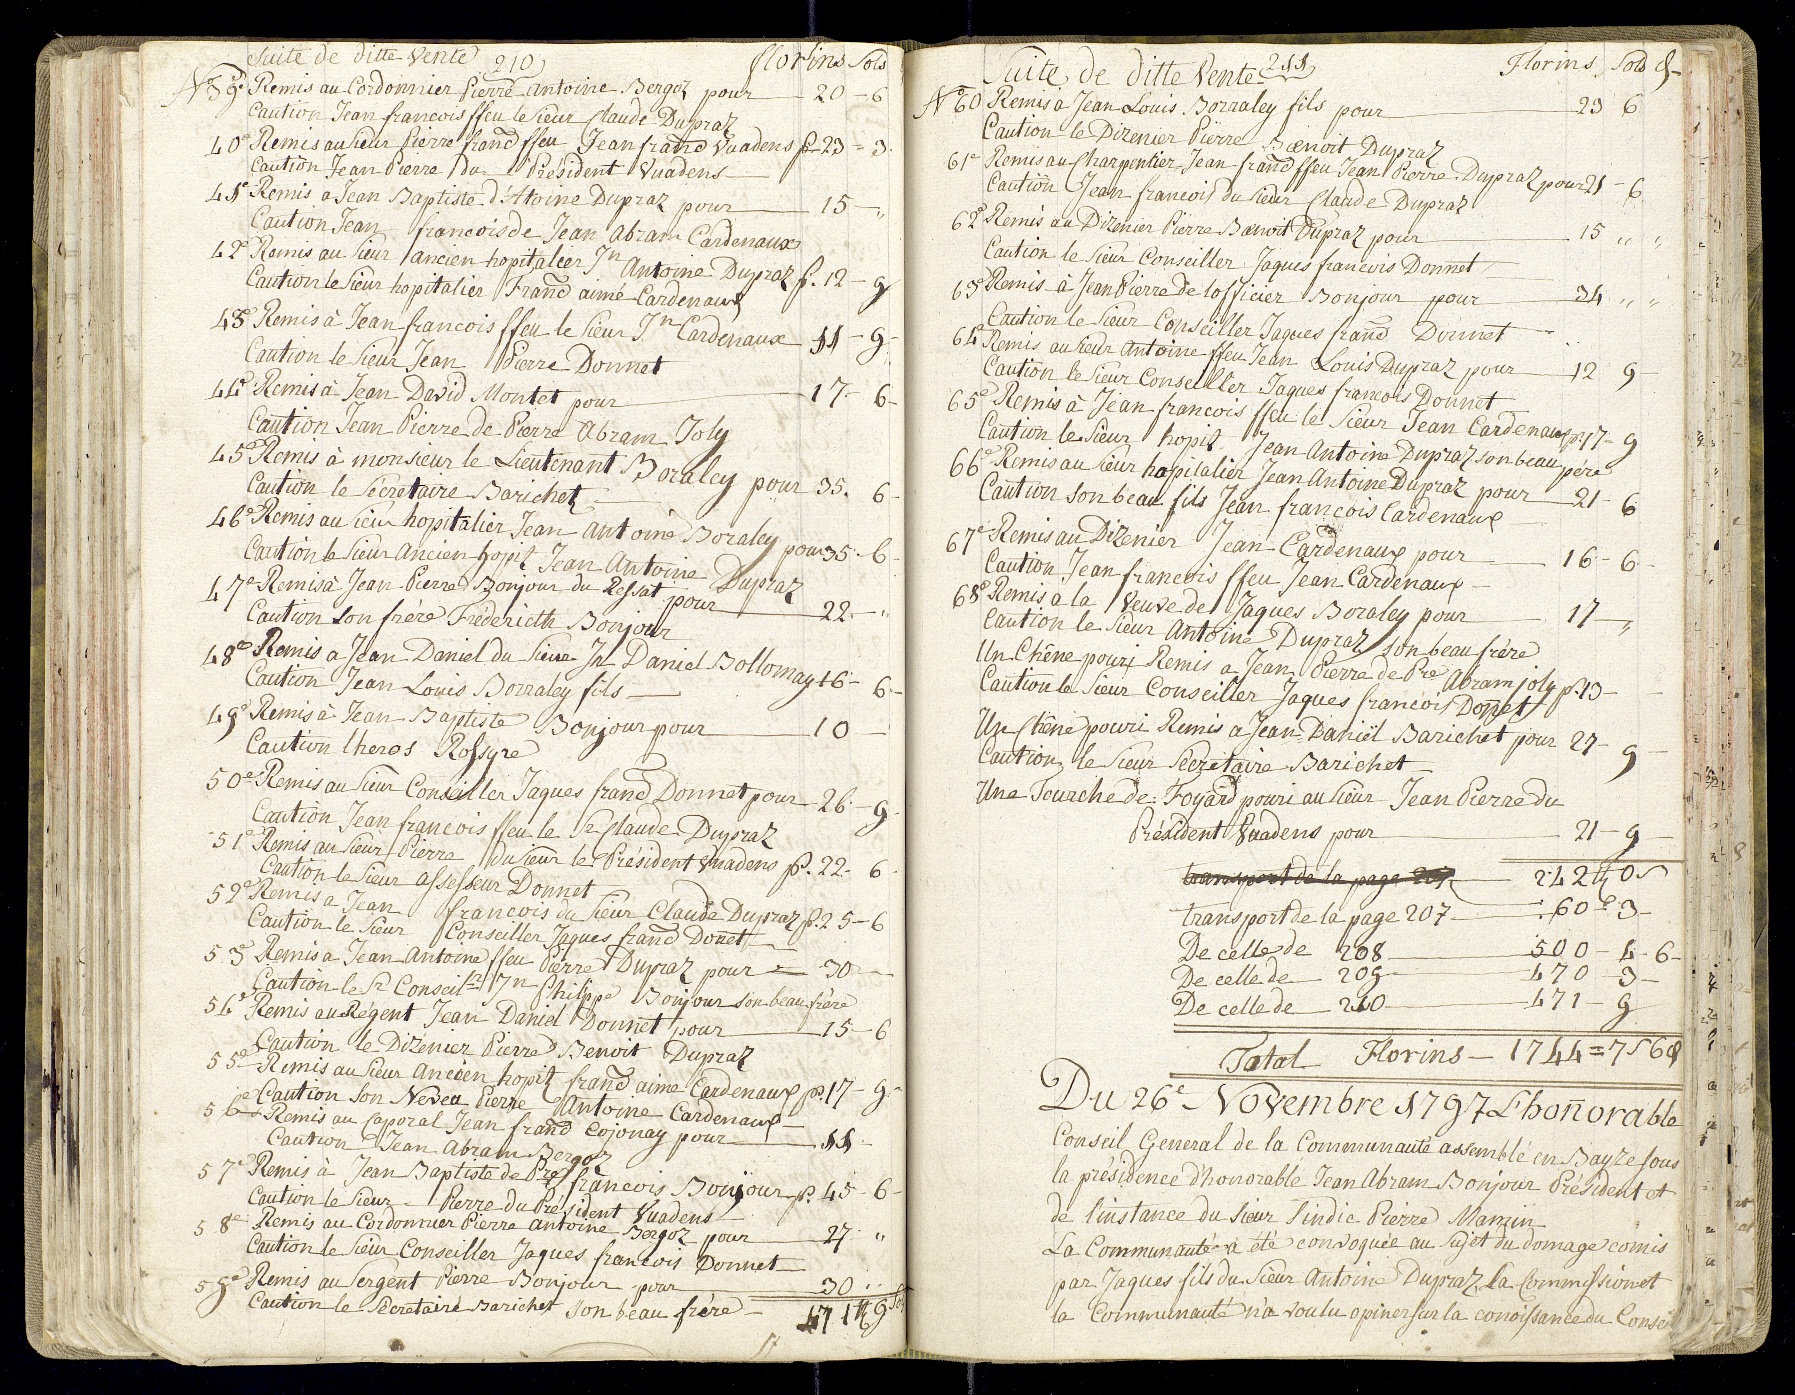 Suite de ditte Vente 210 florins Sols
N° 39e Remis au Cordonnier Pierre Antoine Bergoz pour 20 - 6
Caution Jean francois ffeu le Sieur Claude Dupraz
40e Remis au Sieur Pierre frand ffeu Jean frand Vuadens p. 23 - 3.
Caution Jean Pierre du Président Vuadens
41e Remis a Jean Baptiste d'Atoine Dupraz pour 15 - "
Caution Jean francois de Jean Abram Cardenaux
42e Remis au Sieur ancien hopitalier Jn Antoine Dupraz p. 12 - 9
Caution le Sieur hopitalier Frand aimé Cardenaux
43e Remis à Jean francois ffeu le Sieur Jn Cardenaux 11 - 9
Caution le Sieur Jean Pierre Donnet
44e Remis à Jean David Montet pour 17 - 6 -
Caution Jean Pierre de Pierre Abram Joly
45e Remis à monsieur le Lieutenant Boraley pour 35. 6 -
Caution le Sécretaire Barichet
46e Remis au Sieur hopitalier Jean Antoine Boraley pour 35 - 6 -
Caution le Sieur Ancien hopit Jean Antoine Dupraz
47e Remis à Jean Pierre Bonjour du Ressat pour 22 - "
Caution son frére Fréderieth Bonjour
48e Remis a Jean Daniel du Sieur Jn Daniel Bollomay 16 - 6 -
Caution Jean Louis Borraley fils
49e Remis à Jean Baptiste Bonjour pour 10 -
Caution lheros Rossyre
50e Remis au Sieur Conseiller Jaques frand Donnet pour 26 - 9
Caution Jean francois ffeu le Sr Claude Dupraz
51e Remis au Sieur Pierre du Sieur le Président Vuadens p. 22 - 6
Caution le Sieur assesseur Donnet
52e Remis a Jean francois du Sieur Claude Dupraz p. 25 - 6
Caution le Sieur Conseiller Jaques frand Donnet
53e Remis a Jean Antoine ffeu Pierre Dupraz pour 30 -
Caution le Sr Conseillr Jn Philippe Bonjour son beau frére
54e Remis au Régent Jean Daniel Donnet pour 15 - 6
Caution le Dizenier Pierre Benoit Dupraz
55e Remis au Sieur Ancien hopit frand aimé Cardenaux p. 17 - 9
Caution son Neveu Pierre Antoine Cardenaux
56e Remis au Caporal Jean frand Cojonay pour 11 -
Caution Jean Abram Bergoz
57e Remis à Jean Baptiste de Pre francois Bonjour p. 45 - 6 -
Caution le Sieur Pierre du Président Vuadens
58e Remis au Cordonnier Pierre Antoine Bergoz pour 27 "
Caution le Sieur Conseiller Jaques francois Donnet
59e Remis au Sergent Pierre Bonjour pour 30 "
Caution le Sécretaire Barichet son beau frére
471 9
Suite de ditte Vente 211 Florins Sols
N° 60 Remis à Jean Louis Borraley fils pour 23 6
Caution le Dizenier Pierre Benoit Dupraz
61e Remis au Charpentier Jean frand ffeu Jean Pierre Dupraz pour 21 - 6
Caution Jean francois du Sieur Claude Dupraz
62e Remis au Dizenier Pierre Benoit Dupraz pour 15 " "
Caution le Sieur Conseiller Jaques francois Donnet
63e Remis à Jean Pierre de lofficier Bonjour pour 34 " "
Caution le Sieur Conseiller Jaques frand Donnet
64e Remis au Sieur Antoine ffeu Jean Louis Dupraz pour 12 9 -
Caution le Sieur Conseiller Jaques francois Donnet
65e Remis à Jean francois ffeu le Sieur Jean Cardenaux p. 17 - 9
Caution le Sieur hopit Jean Antoine Dupraz son beau pére
66e Remis au Sieur hopitalier Jean Antoine Dupraz pour 21 - 6
Caution son beau fils Jean francois Cardenaux
67e Remis au Dizenier Jean Cardenaux pour 16 - 6 -
Caution Jean francois ffeu Jean Cardenaux
68e Remis a la Veuve de Jaques Boraley pour 17 - "
Caution le Sieur Antoine Dupraz son beau frére
Un Chêne pouri Remis a Jean Pierre de Pre Abram joly p. 13 -
Caution le Sieur Conseiller Jaques francois Donnet
Un Chêne pouri Remis a Jean Daniël Barichet pour 27 - 9 -
Caution le Sieur Sécretaire Barichet
Une Tourche de Foyard pouri au Sieur Jean Pierre du
Président Vuadens pour 21 - 9 -
transport de la page 242
transport de la page 207 60 - 3 -
De celle de 208 500 - 4 - 6 -
De celle de 209 470 - 3 -
De celle de 210 471 - 9
Total Florins 1744 =
Du 26e Novembre 1797 L'honnorable
Conseil General de la Communauté assemblé en Bayze sous
la présidence d'honorable Jean Abram Bonjour Président et
de l'instance du Sieur Sindic Pierre Manzin
La Communauté a été convoquée au Sujet du domage comis
par Jaques fils du Sieur Antoine Dupraz, La Commission et
la Communauté n'a voulu opiner sur la conoissance du Consei